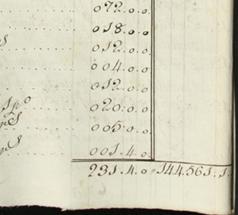 072.0.0
018.0.0
012.0.0
004.0.0
012.0.0
020.0.0
005.0.0
001.4.0
231.4.0 144.561.1.